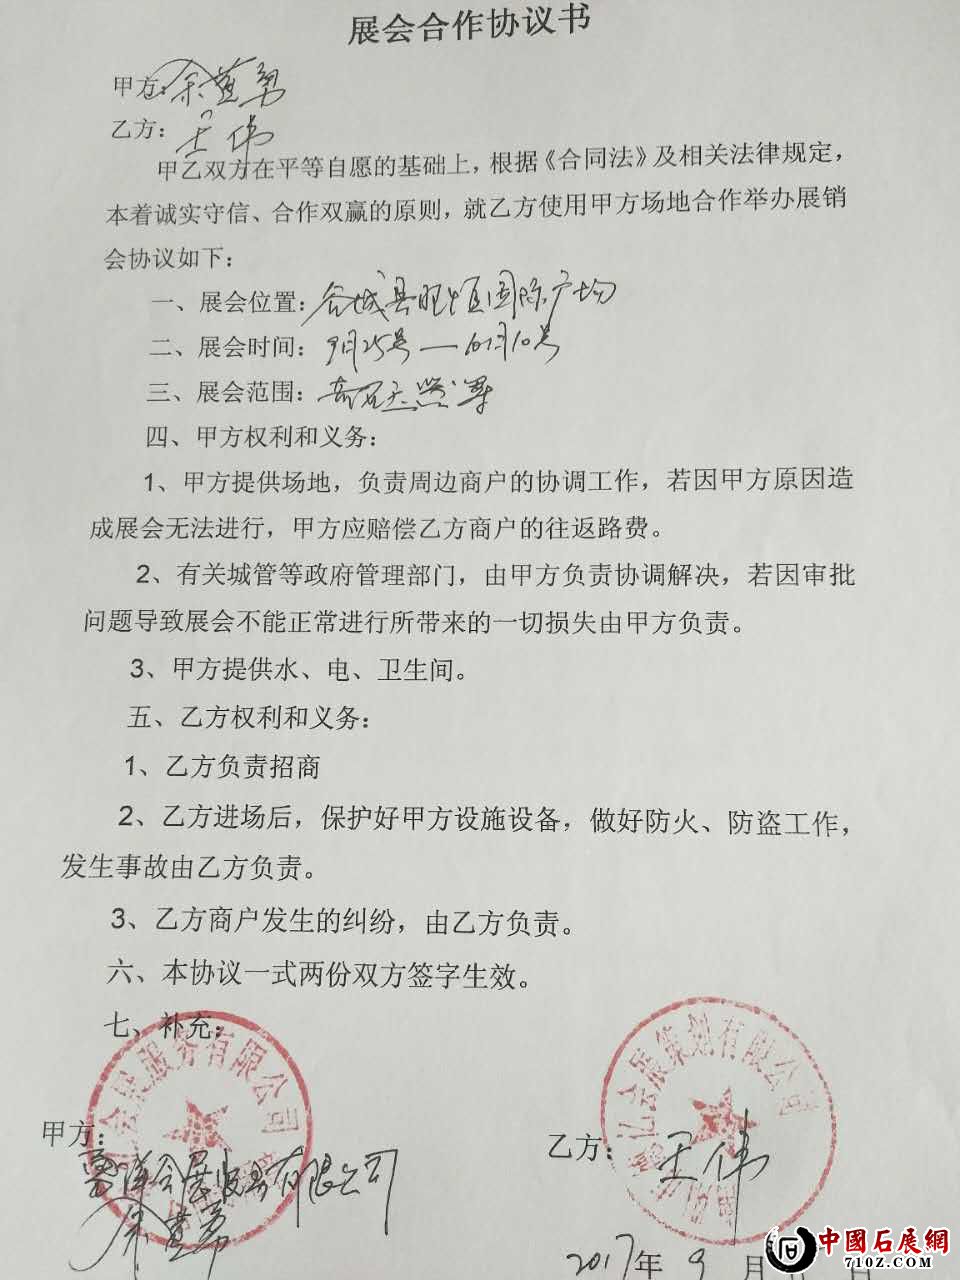 展会合作协议书
甲方：余
乙方：王伟
甲乙双方在平等自愿的基础上，根据《合同法》及相关法律规定，
本着诚实守信、合作双赢的原则，就乙方使用甲方场地合作举办展销
会协议如下：
一、展会位置：谷城县 国际广场
二、展会时间：9月25号—10月10号
三、展会范围：奇石
四、甲方权利和义务：
1、甲方提供场地，负责周边商户的协调工作，若因甲方原因造
成展会无法进行，甲方应赔偿乙方商户的往返路费。
2、有关城管等政府管理部门，由甲方负责协调解决，若因审批
问题导致展会不能正常进行所带来的一切损失由甲方负责。
3、甲方提供水、电、卫生间。
五、乙方权利和义务：
1、乙方负责招商
2、乙方进场后，保护好甲方设施设备，做好防火、防盗工作，
发生事故由乙方负责。
3、乙方商户发生的纠纷，由乙方负责。
六、本协议一式两份双方签字生效。
七、补充：
会展服务有限公司
会展策划有限公司
甲方：
会展服务有限公司
乙方：王伟
2017年9月 日
中國石展網
71OZ.COM